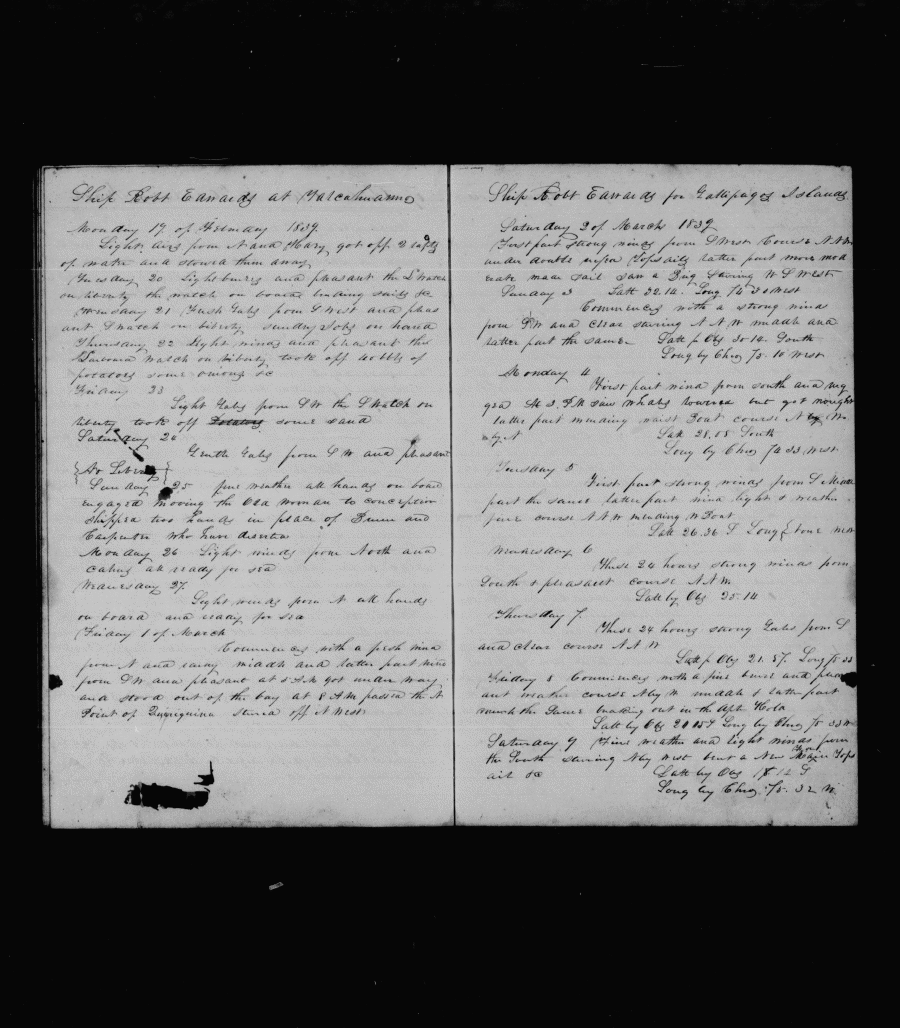 Ship Robt Edwards at Talcahuanno
Monday 19 of Febuary 1839
Light airs from N and Hazy got off 2 rafts
of water and stowed them away
Tuesday 20 Light breezes and pleasant the L Watch
on liberty the watch on board bending sails &c
Wensday 21 Fresh Gales from S West and pleas
ant S watch on liberty sunday Jobs on board
Thursday 22 Light winds and pleasant the
Larboard watch on liberty took off 40 bbls of
potatoes some onions &c
Friday 23
Light Gales from SW the S Watch on
liberty took off Potatoes some sand
Saturday 24
Gentle Gales from SW and pleasant
{ No Liberty }
Sunday 25 fine weather all hands on board
engaged moving the Old woman to conception
shipped two hands in place of and
Carpenter who have deserted
Monday 26 Light winds from North and
calms all ready for sea
Wednesday 27
Light winds from N all hands
on board and ready for sea
Friday 1 of March
Commences with a fresh wind
from N and rainy middle and latter part wind
from SW and pleasant at 5 A.M got under way
and stood out of the bay at 8 A.M passed the N
Point of Quiriquina steerd off N West
Ship Robt Edwards for Gallepagos Islands
Saturday 2 of March 1839
First part strong winds from S West Course N.N.W
under double reefed Topsails latter part more mod
erate made sail saw a Brig stering W S West
Sunday 3 Latt 32.14. Long 74 30 West
Commences with a strong wind
from SW and clear stering N N W middle and
latter part the same Latt p Obs 30.14. South
Long by Chro 75.10 West
Monday 4
First part wind from south and rug
ged At 3 P.M saw whales lowered but got nought
latter part mending waist Boat course N by W
by N Latt 28.08 South
Long by Chro 74 33 West
Tuesday 5
First part strong winds from S Middle
part the same latter part wind light & weather
fine course N N W mending W Boat
Latt 26.36 S Long {None West
Wendesday 6
These 24 hours strong winds from
South & pleasant course N.N.W
Latt by Obs 25.14
Thursday 7
These 24 hours strong Gales from S
and clear course N N W
Latt p Obs 21.57. Long 75 33
Friday 8 Commences with a fine breeze and pleas
ant weather course N by W middle & latter part
much the same breaking out in the After Hold
Latt by Obs 20 15 S Long by Chro 75 33 W
Saturday 9 Fine weather and light winds from
the South stering N by West bent a New Main Tops
ail &c Latt by Obs 18 12 S
Long by Chro 75.32 W